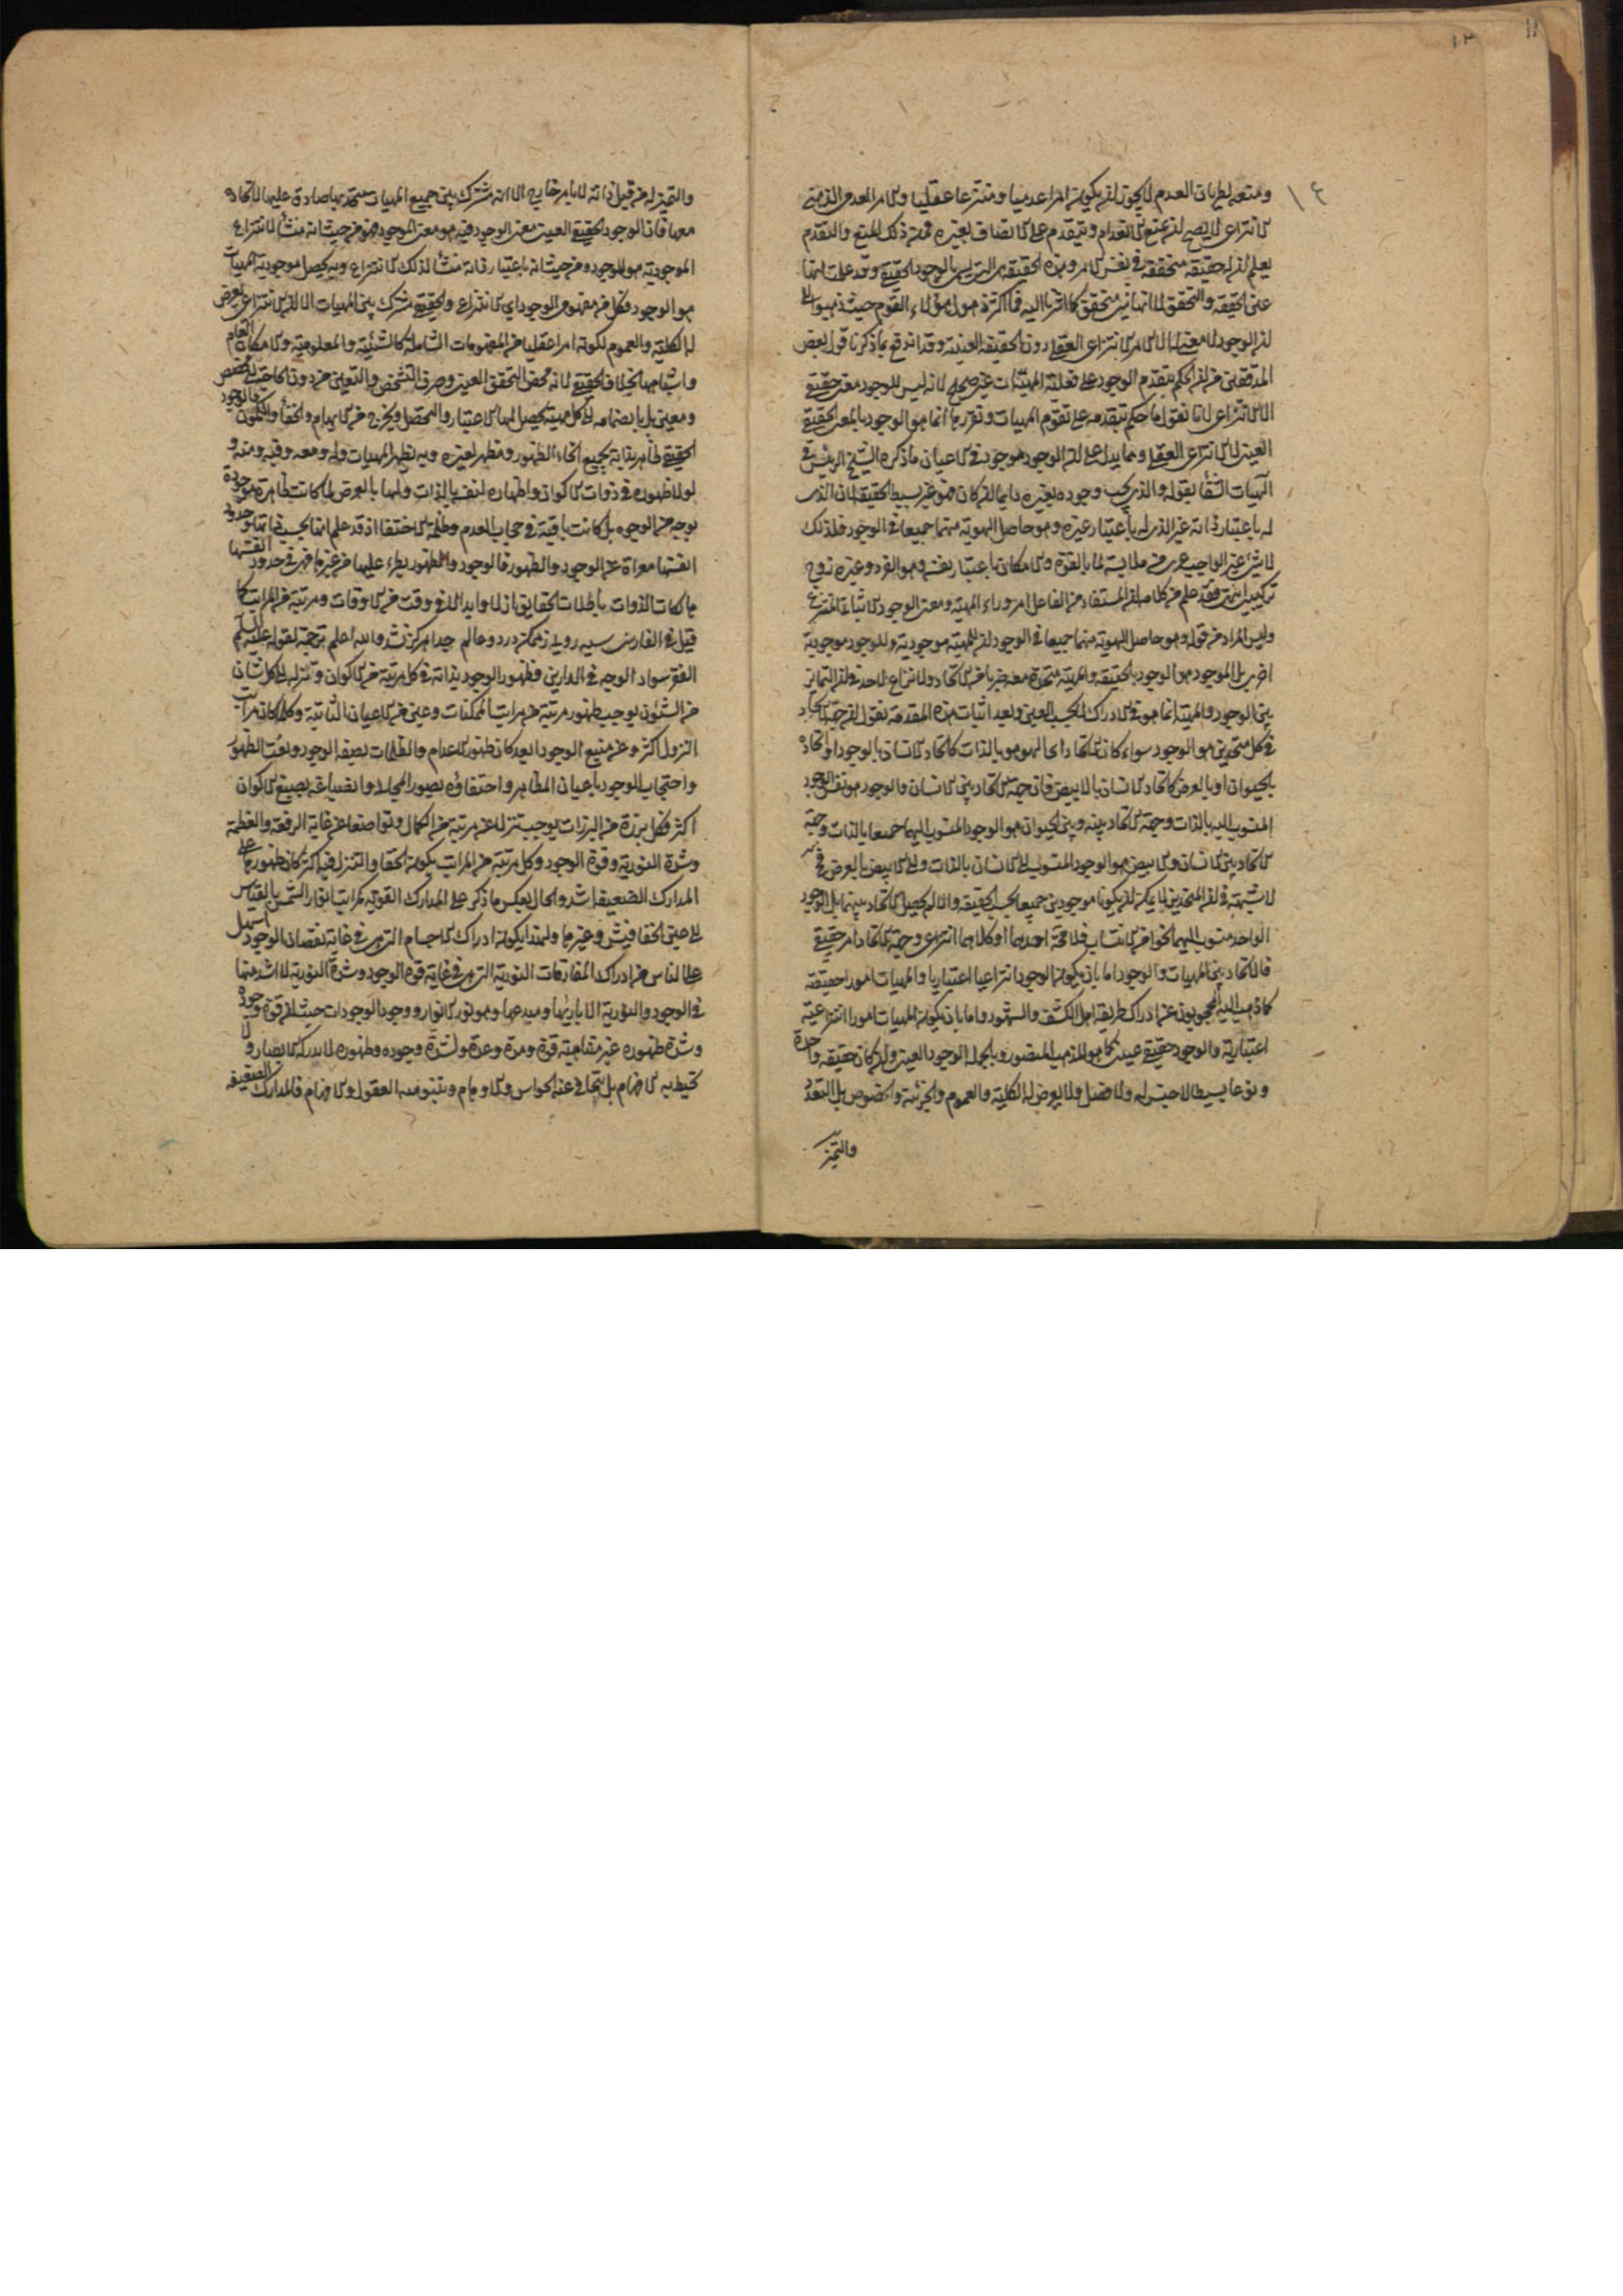 ١٢
١١
١٤
ومنعه لطريان العدم لا يجوز ان يكون امرا عدميا ومنتزعا عقليا والامر العدمى الذهنى
الانتزاعى لا يصح ان يمنع الانعدام ويتقدم على الاتصاف بغيره فمن ذلك المنع والتقدم
يعلم ان له حقيقة متحققة فى نفس الامر وهذه الحقيقة هى التى يسمى بالوجود الحقيقى وقد علمت انها
عين الحقيقة والتحقق لا انها شىء متحقق كما اشرنا اليه فما اكثر ذهول هؤلاء القوم حيث ذهبوا الى
ان الوجود لا معنى له الا الامر الانتزاعى العقلى دون الحقيقة العينية وقد اندفع بما ذكرنا قول بعض
المدققين من ان الحكم بتقدم الوجود على فعلية المهيات غير صحيح لانه ليس للوجود معنى حقيقى
الا الانتزاعى لانا نقول ما حكم بتقدمه على تقوم المهيات وتقررها انما هو الوجود بالمعنى الحقيقى
العينى لا الانتزاعى العقلى ومما يدل على ان الوجود موجود فى الاعيان ما ذكره الشيخ الرئيس فى
الهيات الشفا بقوله والذى يجب وجوده بغيره دايما ان كان فهو غير بسيط الحقيقة لان الذى
له باعتبار ذاته غير الذى له باعتبار غيره وهو حاصل الهوية منهما جميعا فى الوجود فلذلك
لا شىء غير الواجب عرى من ملابسة ما بالقوة والامكان باعتبار نفسه وهو الفرد وغيره زوج
تركيبى انتهى فقد علم من كلامه ان المستفاد من الفاعل امر وراء المهية ومعنى الوجود الاثباتى المنتزع
وليس المراد من قوله وهو حاصل الهوية منهما جميعا فى الوجود ان للمهية موجودية وللوجود موجودية
اخرى بل الموجود هو الوجود بالحقيقة والمهية متحدة معه ضربا من الاتحاد ولا نزاع لاحد فى ان التمايز
بين الوجود والمهية انما هو فى الادراك لا بحسب العين وبعد اثبات هذه المقدمة نقول ان جهة الاتحاد
فى كل متحدين هو الوجود سواء كان الاتحاد اى الهو هو بالذات كاتحاد الانسان بالوجود او اتحاده
بالحيوان او بالعرض كاتحاد الانسان بالابيض فان جهة الاتحاد بين الانسان والوجود هو نفس الوجود
المنسوب اليه بالذات وجهة الاتحاد بينه وبين الحيوان هو الوجود المنسوب اليهما جميعا بالذات وجهة
الاتحاد بين الانسان والابيض هو الوجود المنسوب الى الانسان بالذات والى الابيض بالعرض فح
لا شبهة فى ان المتحدين لا يمكن ان يكونا موجودين جميعا بحسب الحقيقة والا لم يحصل الاتحاد بينهما بل الوجود
الواحد منسوب اليهما نحوا من الانتساب فلا محة احدهما او كلاهما انتزاعى وجهة الاتحاد امر حقيقى
فالاتحاد بين المهيات والوجود اما بان يكون الوجود انتزاعيا اعتباريا والمهيات امور احقيقة
كما ذهب اليه المحجوبون عن ادراك طريقة اهل الكشف والشهود واما بان يكون المهيات امورا انتزاعية
اعتبارية والوجود حقيقى عينى كما هو المذهب المنصور وبالجملة الوجود العينى وان كان حقيقة واحدة
ونوعا بسيطا لا جنس له ولا فصل ولا يعرض له الكلية والعموم والجزئية والخصوص بل التعدد
والتميز
والتميز له من قبل ذاته لا بامر خارج الا انه مشترك بين جميع المهيات متحد بها صادق عليها لاتحاده
معها فان الوجود الحقيقى العينى معنى الوجود فيه هو معنى الموجود فهو من حيث انه منشأ لانتزاع
الموجودية هو الموجود ومن حيث انه باعتبار ذاته منشأ لذلك الانتزاع وبه يحصل موجودية المهيات
هو الوجود فكل من مفهومى الوجود اى الانتزاعى والحقيقى مشترك بين المهيات الا ان الانتزاعى يعرض
له الكلية والعموم لكونه امرا عقليا من المفهومات الشاملة كالشيئية والمعلومية والامكان العام
واشباهها بخلاف الحقيقى لانه محض التحقق العينى وصرف التشخص والتعين من دون الحاجة الى مخصص
ومعين بل بانضمامه الى كل مهية يحصل لها الامتياز والتحصل ويخرج من الابهام والخفاء والكمون فالوجود
الحقيقى ظاهر بذاته بجميع انحاء الظهور ومظهر لغيره وبه تظهر المهيات وله ومعه وفيه ومنه و
لولا ظهوره فى ذوات الاكوان واظهاره لنفسه بالذات ولها بالعرض لما كانت ظاهرة موجودة
بوجه من الوجوه بل كانت باقية فى حجاب العدم وظلمة الاختفا اذ قد علم انها بحسب ذاتها وحدود
انفسها معراة عن الوجود والظهور فالوجود والظهور يطرء عليها من غيرها فهى فى حدود انفسها
هالكات الذوات باطلات الحقايق ازلا وابدا لا فى وقت من الاوقات ومرتبة من المراتب كما
قيل فى الفارسى سيه رويى ز ممكن در دو عالم جدا هركز نشد والله اعلم ترجمة لقوله عليه السلام
الفقر سواد الوجه فى الدارين فظهور الوجود بذاته فى كل مرتبة من الاكوان وتنزله الى كل شان
من الشئون يوجب ظهور مرتبة من مراتب الممكنات وعين من الاعيان الثابتة وكلما كان مراتب
النزول اكثر وعن منبع الوجود ابعد كان ظهور الاعدام والظلمات بصفة الوجود ونعت الظهور
واحتجاب الوجود باعيان المظاهر واختفاؤه بصور المجالى وانصباغه بصبغ الاكوان
اكثر فكل برزة من البرزات يوجب تنزلا عن مرتبة من الكمال وتواضعا عن غاية الرفعة والعظمة
وشدة النورية وقوة الوجود وكل مرتبة من المراتب يكون الخفا والتنزل فيها اكثر كان ظهورها على
المدارك الضعيفة اشد والحال بعكس ما ذكر على المدارك القوية كمراتب انوار الشمس بالقياس
الى اعين الخفافيش وغيرها ولهذا يكون ادراك الاجسام التى هى فى غاية نقصان الوجود اسهل
على الناس من ادراك المفارقات النورية التى هى فى غاية قوة الوجود وشدة النورية لا اشد منها
فى الوجود والنورية الا باريها ومبدعها وهو نور الانوار ووجود الوجودات حيث ان قوة وجوده
وشدة ظهوره غير متناهية قوة ومدة وعدة ولشدة وجوده وظهوره لا يدركه الابصار ولا
تحيط به الافهام بل يتجافى عنه الحواس والاوهام وينبو منه العقول والافهام فالمدارك الضعيفة